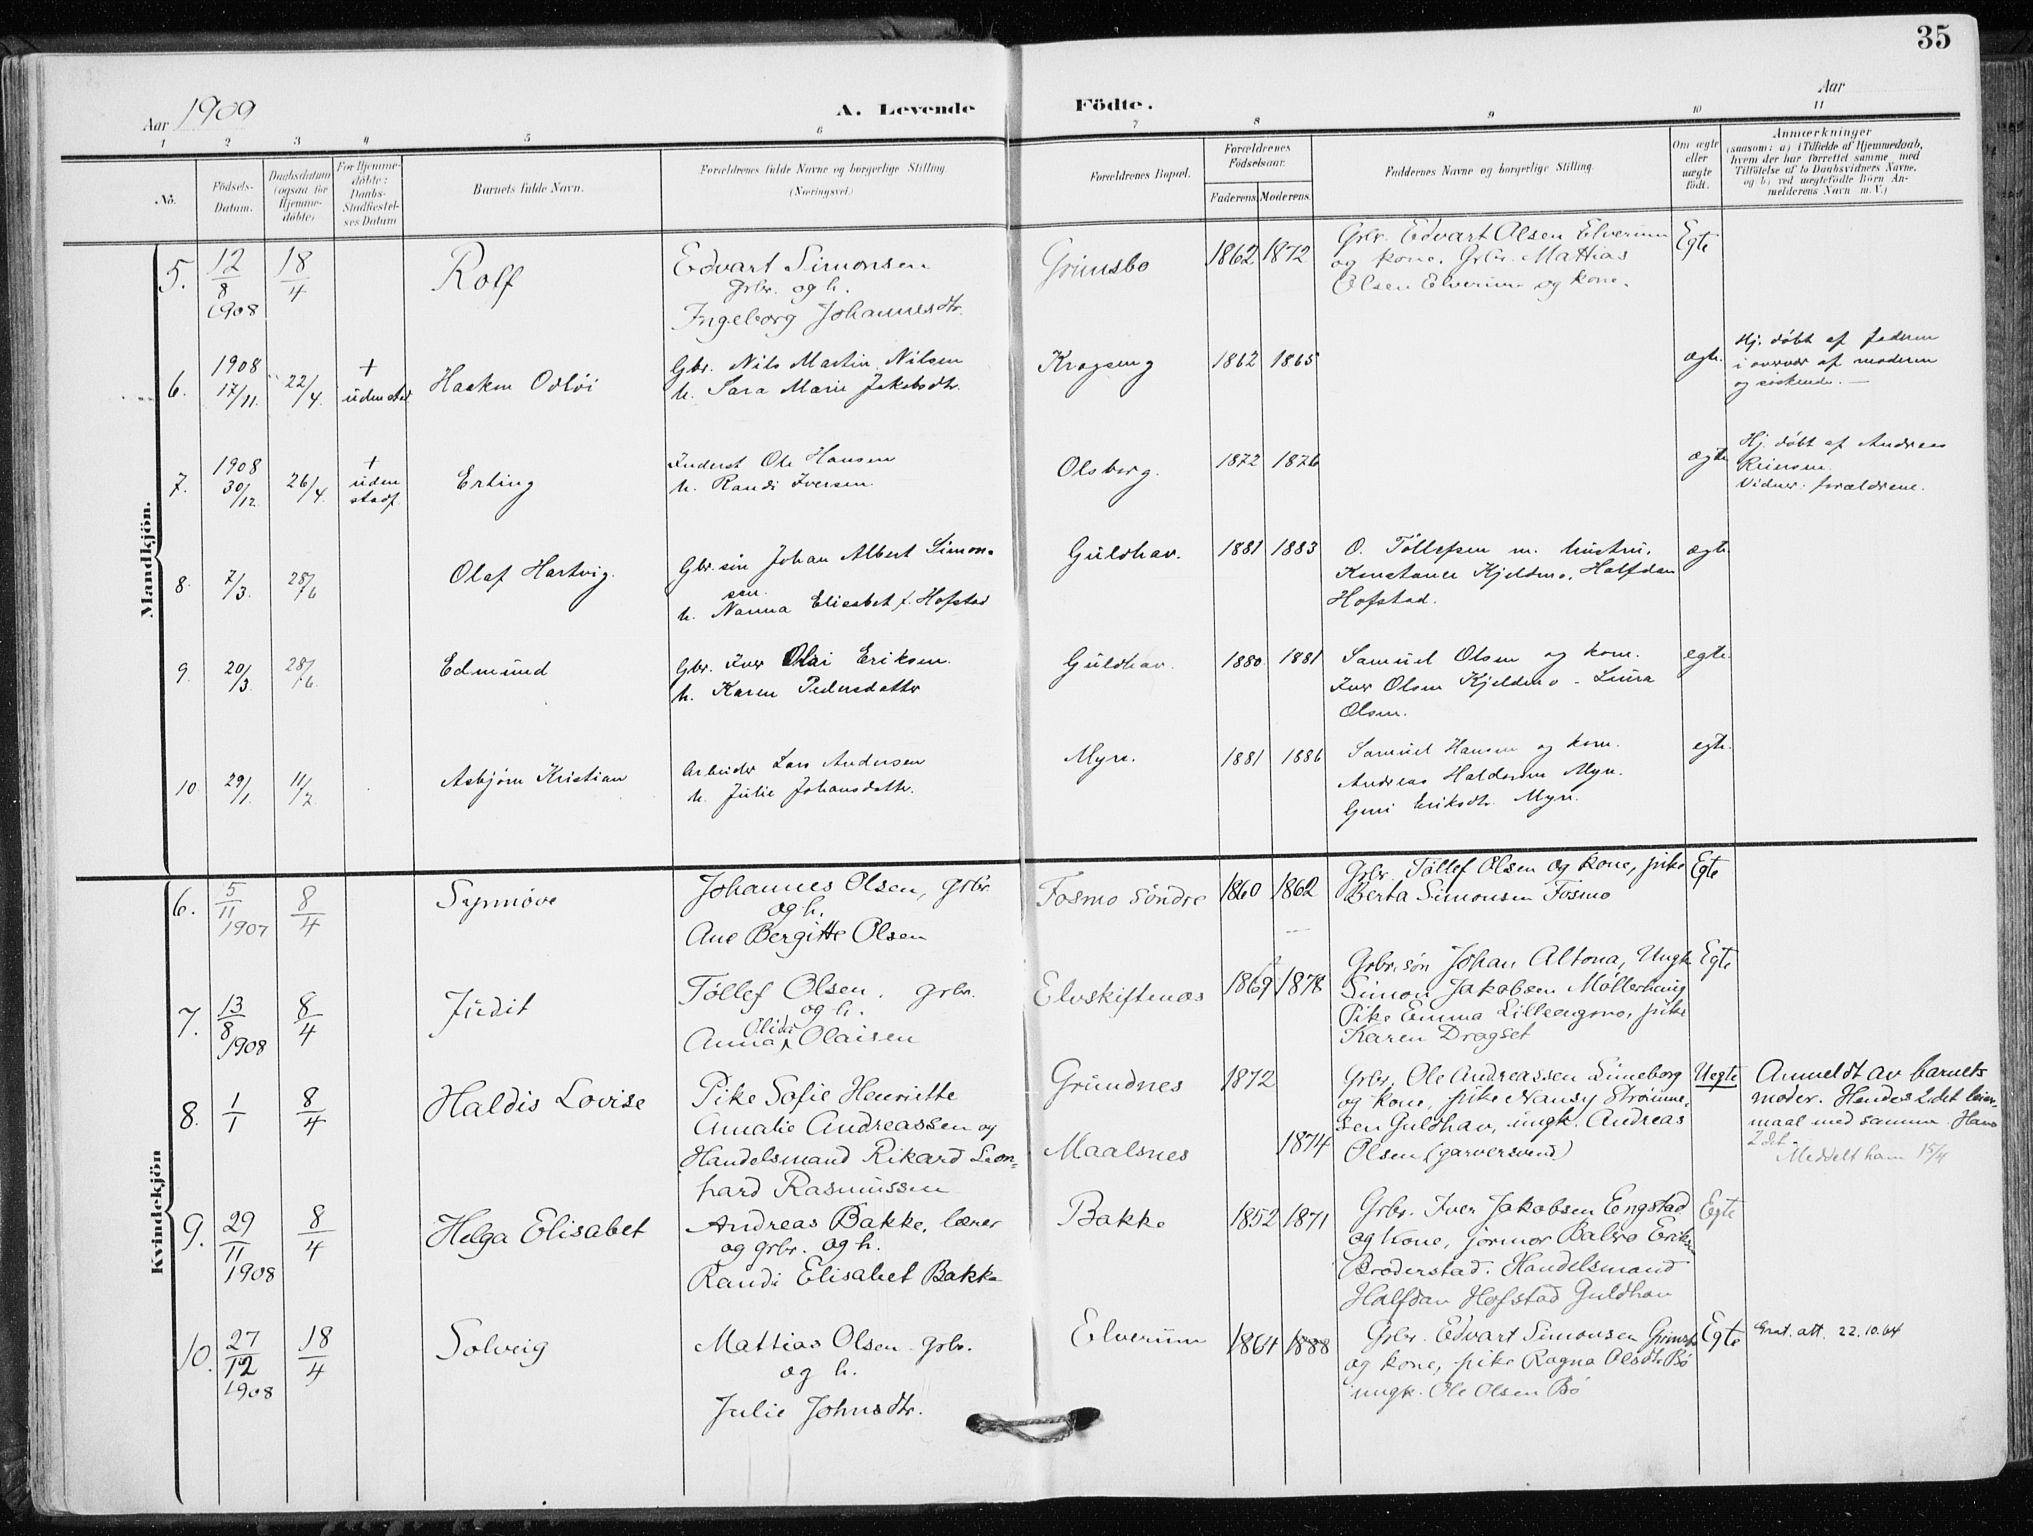 35
Aar 1909
A. Levende Födte.
Aar
1 2 3 4 5 6 7 8 9 10 11
No.
Födsels-
Datum.
Daabsdatum
(ogsaa for
Hjemme-
döbte)
For Hjemme-
döbte:
Daabs-
Stadfæstel-
ses Datum
Barnets fulde Navn.
Forældrenes fulde Navne og borgerlige Stilling
(Næringsvei)
Forældrenes Bopæl.
Forældrenes
Födselsaar.
Faderens Moderens
Faddernes Navne og borgerlige Stilling.
Om ægte
eller
uægte
födt.
Anmærkninger
(saasom: a) i Tilfælde af Hjemmedaab,
hvem der har forrettet samme med
Tilföielse af to Daabsvidners Navne,
og b) ved uægtefödte Börn An-
melderens Navn m. V.)
Mandkjön.
5. 12/8 1908 18/4 Rolf
Edvart Simonsen
grbr. og h.
Ingeborg Johannesdtr.
Grimsbo 1862 1872
Grbr. Edvart Olsen Elverum
og kone. Grbr. Mattias
Olsen Elverum og kone.
Egte
6. 1908 17/11. 22/4. + uden stad Haakon Odløi
Gbr. Nils Martin Nilsen
h. Sara Marie Jakobsdtr.
Krogseng 1862 1865
ægte.
Hj. døbt af faderen
i overvær af moderen
og søskende. —
7. 1908 30/12. 26/4. + uden stadf. Erling
Inderst Ole Hansen
h. Randi Iversen.
Olsborg. 1872 1876
ægte
Hj. døbt af Andreas
Reiersen.
Vidner: forældrene.
8. 7/3. 28/6 Olaf Hartvig.
Gbr. søn Johan Albert Simon-
sen.
h. Nanna Elisabet f. Hofstad
Guldhav. 1881 1883
O. Tøllefsen m. hustru.
Konstance Kjeldmo, Halfdan
Hofstad.
ægte
9. 20/3. 28/6. Edmund
Gbr. Iver Olai Eriksen.
h. Karen Pedersdatter
Guldhav. 1880 1881
Samuel Olsen og kone.
Iver Olsen Kjeldmo - Luira
Olsen.
egte.
10 29/1. 11/2. Asbjørn Kristian
Arbeider Lars Andersen
h. Julie Johansdatter.
Myre. 1881 1886
Samuel Hansen og kone.
Andreas Haldorsen Myre.
Guri Eriksdtr. Myre.
egte.
Kvindekjön
6. 5/11 1907 8/4 Synnøve
Johannes Olsen, grbr.
og h.
Ane Bergitte Olsen
Fosmo søndre 1860 1862
Grbr. Tøllef Olsen og kone, pike
Berta Simonsen Fosmo
Egte
7. 13/8 1908 8/4 Judit
Tøllef Olsen. grbr.
og h.
Olide
Anna Olaisen
Elvskiftenæs 1869 1878
Grbr.søn Johan Altona, Ungk
Simon Jakobsen Møllerhaug
Pike Emma Lillengmo, pike
Karen Dragset
Egte
8. 1/1 8/4 Haldis Lovise
Pike Sofie Henriette
Amalie Andreassen og
Handelsmand Rikard Leon-
hard Rasmussen
Grundnes 1872
Maalsnes 1874
Grbr. Ole Andreassen Luneborg
og kone, pike Nansy Strømme-
sen Guldhav, ungk. Andreas
Olsen (garversvend)
Uegte
Anmeldt av barnets
moder. Hendes 2det leier-
maal med samme. Hans
2det.
Meddelt ham 15/4
9. 29/11 1908 8/4 Helga Elisabet
Andreas Bakke, lærer
og grbr. og h.
Randi Elisabet Bakke
Bakke 1852 1871
Grbr. Iver Jakobsen Engstad
og kone, jormor Balbro Eriksen
Brøderstad. Handelsmand
Halfdan Hofstad Guldhav
Egte
10. 27/12 1908 18/4 Solveig
Mattias Olsen grbr.
og h.
Julie Johnsdtr.
Elverum 1864 1888
Grbr. Edvart Simonsen Grimsbo
og kone, pike Ragna Olsdtr. Bø
ungk. Ole Olsen Bø
Egte
Grat. att. 22.10.64